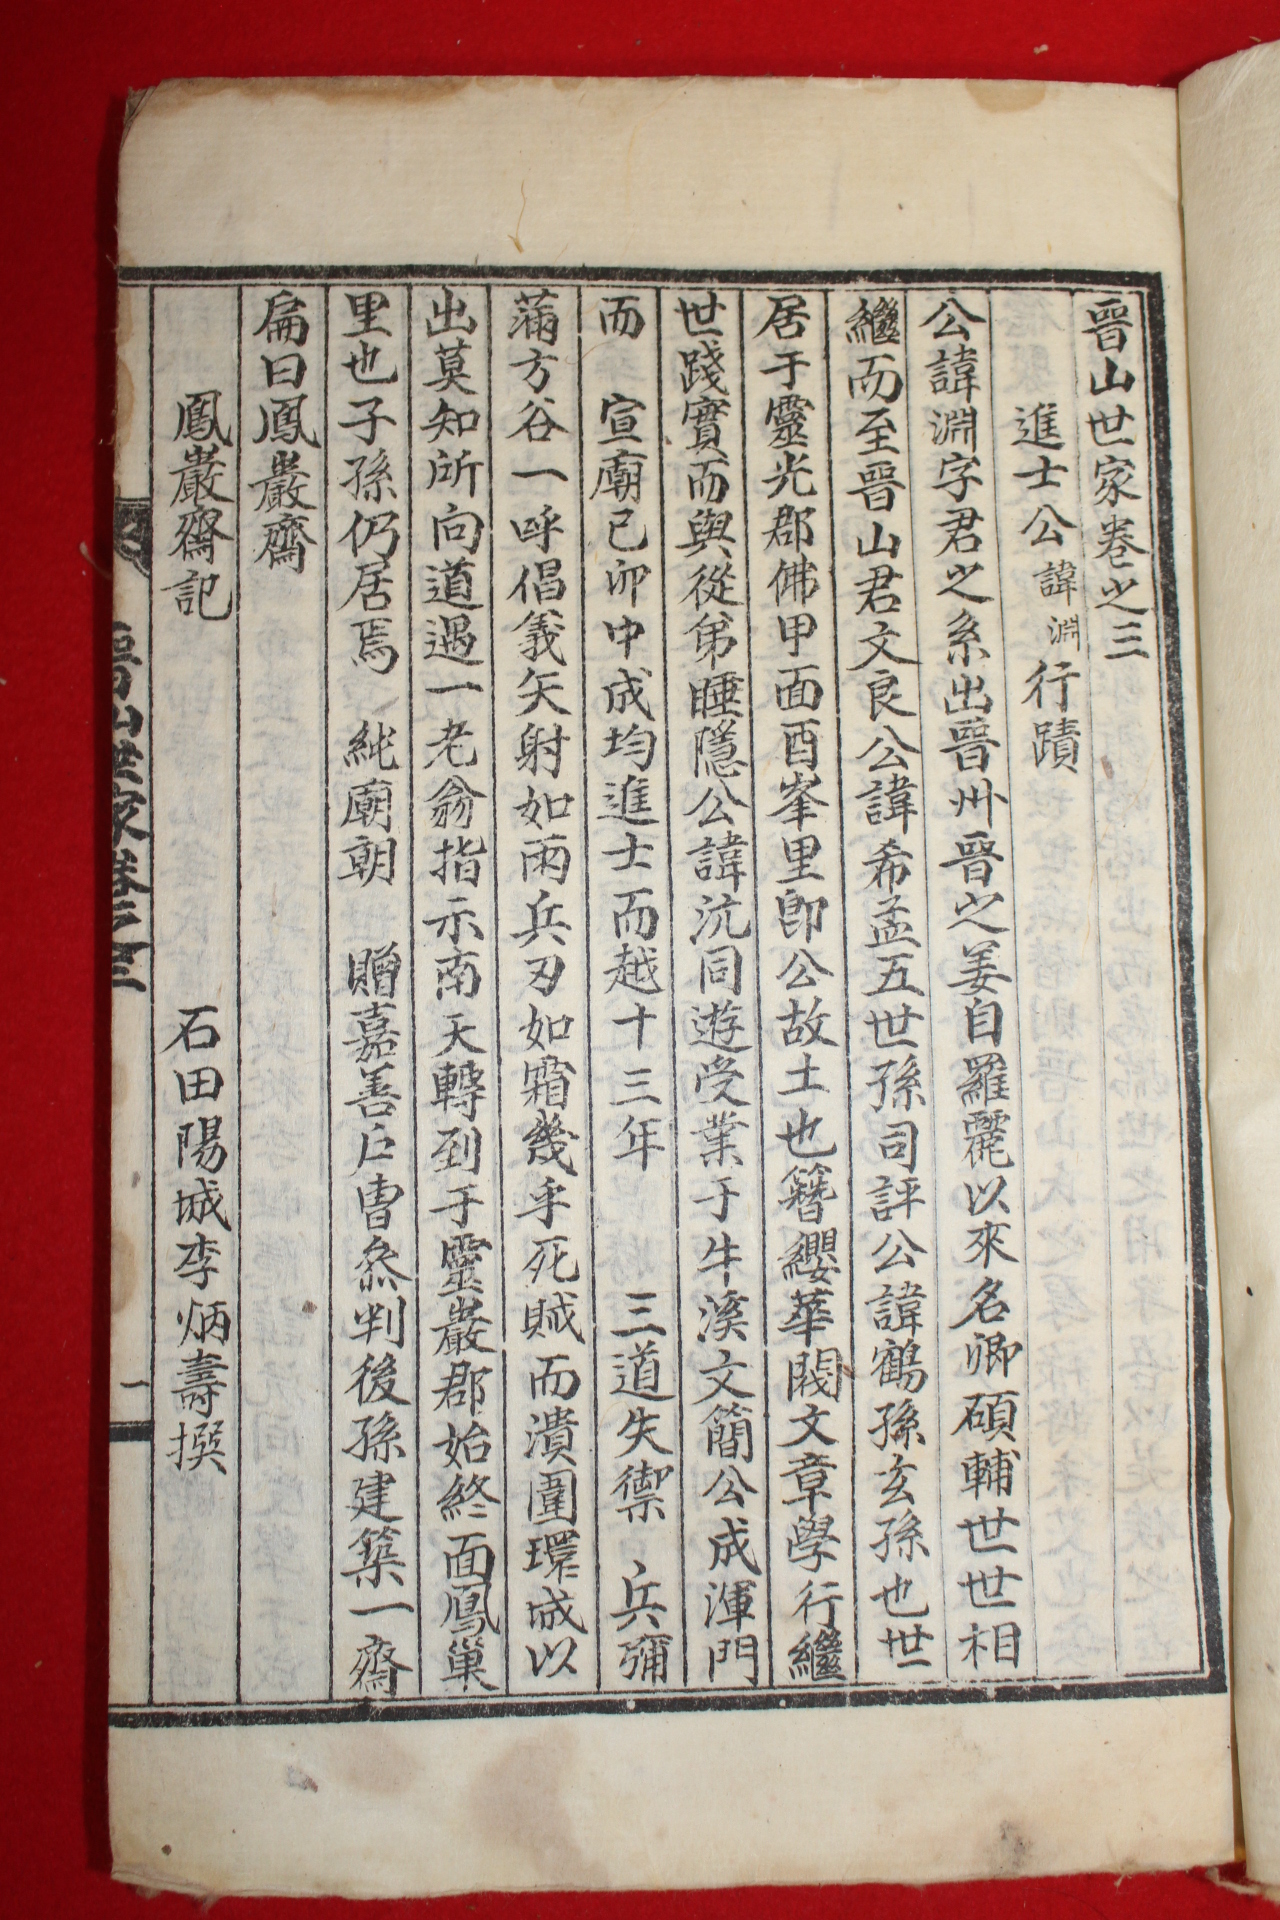 晉山世家卷之三
進士公諱淵行蹟
公諱淵字君之系出晉州晉之姜自羅麗以來名卿碩輔世世相
繼而至晉山君文良公諱希孟五世孫司評公諱鶴孫玄孫也世
居于靈光郡佛甲面酉峯里卽公故土也簪纓華閥文章學行繼
世踐實而與從弟睡隱公諱沆同遊受業于牛溪文簡公成渾門
而 宣廟己卯中成均進士而越十三年 三道失禦 兵彌
滿方谷一呼倡義矢射如雨兵刃如霜幾乎死賊而潰圍環城以
出莫知所向道遇一老翁指示南天轉到于靈巖郡始終面鳳巢
里也子孫仍居焉 純廟朝 贈嘉善戶曹叅判後孫建築一齋
扁曰鳳巖齋
鳳巖齋記 石田陽城李炳壽撰
晉山世家卷之三 一